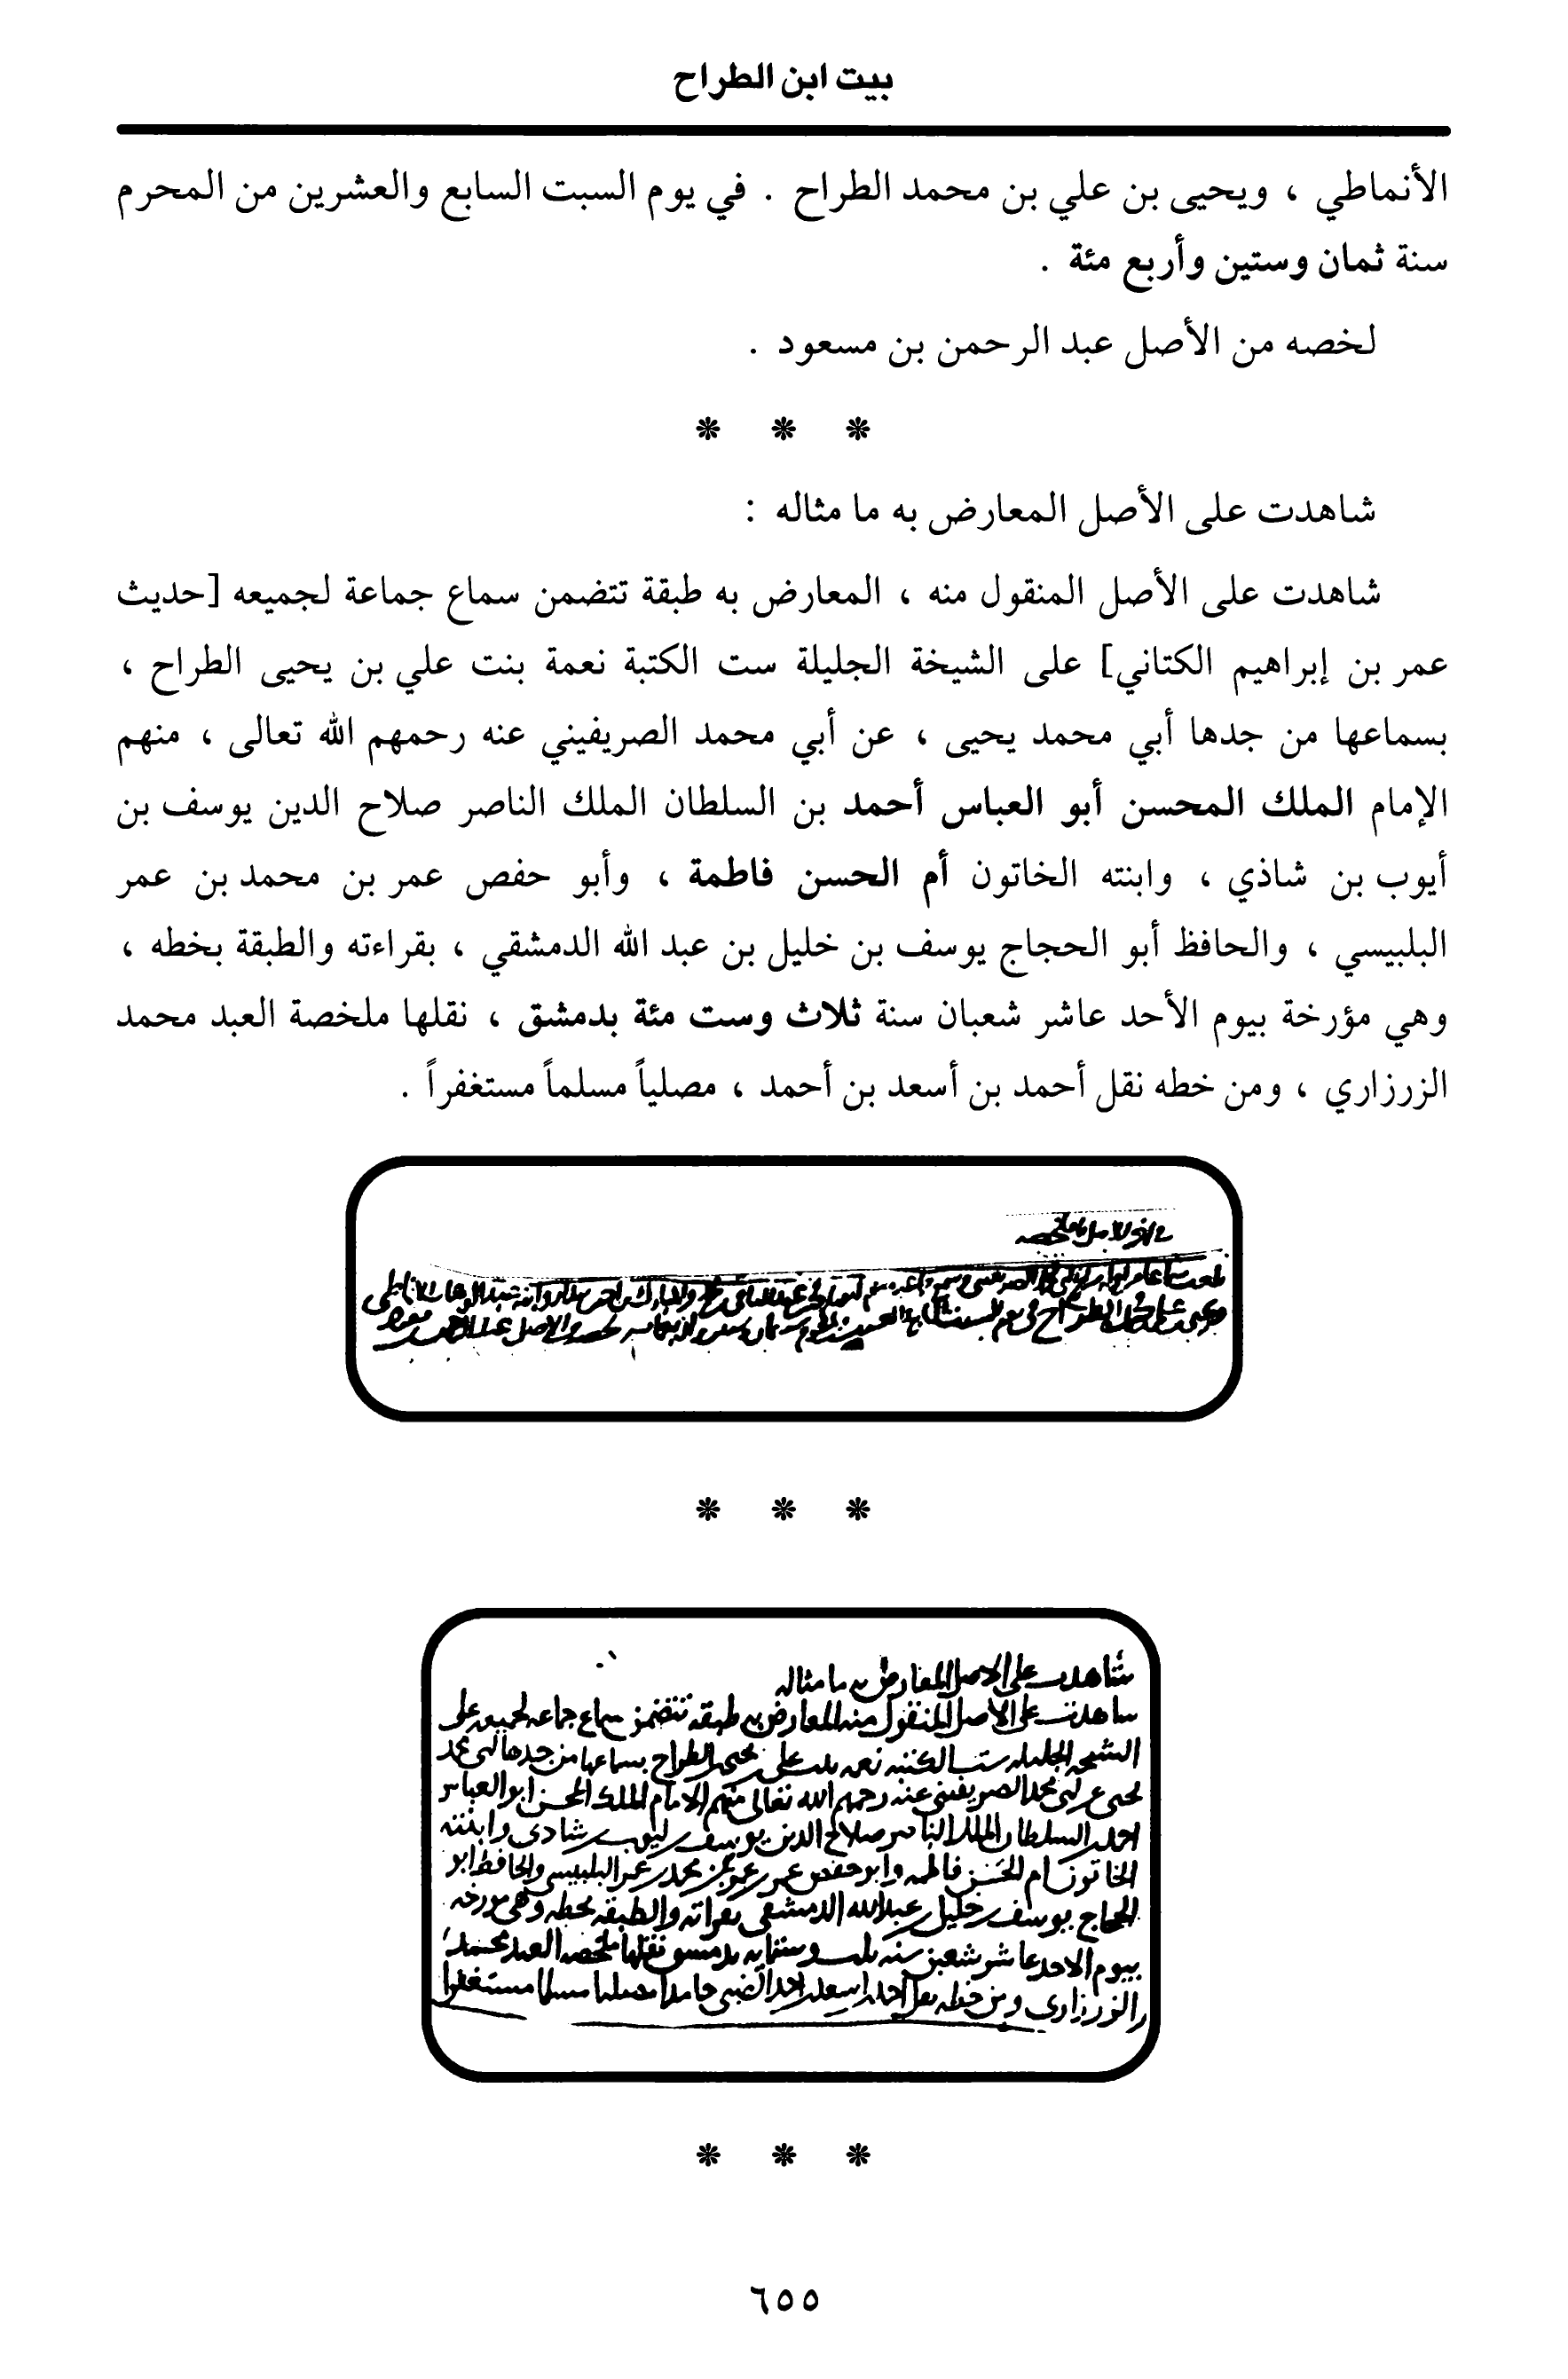 بيت ابن الطراح
الأنماطي ، ويحيى بن علي بن محمد الطراح . في يوم السبت السابع والعشرين من المحرم
سنة ثمان وستين وأربع مئة .
لخصه من الأصل عبد الرحمن بن مسعود .
* * *
شاهدت على الأصل المعارض به ما مثاله :
شاهدت على الأصل المنقول منه ، المعارض به طبقة تتضمن سماع جماعة لجميعه [حديث
عمر بن إبراهيم الكتاني] على الشيخة الجليلة ست الكتبة نعمة بنت علي بن يحيى الطراح ،
بسماعها من جدها أبي محمد يحيى ، عن أبي محمد الصريفيني عنه رحمهم الله تعالى ، منهم
الإمام الملك المحسن أبو العباس أحمد بن السلطان الملك الناصر صلاح الدين يوسف بن
أيوب بن شاذي ، وابنته الخاتون أم الحسن فاطمة ، وأبو حفص عمر بن محمد بن عمر
البلبيسي ، والحافظ أبو الحجاج يوسف بن خليل بن عبد الله الدمشقي ، بقراءته والطبقة بخطه ،
وهي مؤرخة بيوم الأحد عاشر شعبان سنة ثلاث وست مئة بدمشق ، نقلها ملخصة العبد محمد
الزرزاري ، ومن خطه نقل أحمد بن أسعد بن أحمد ، مصلياً مسلماً مستغفراً .
* * *
شاهدت على الاصل المعارض به ما مثاله
شاهدت على الاصل المنقول منه المعارض به طبقة تتضمن سماع جماعه لجميعه على
الشيخه الجليله ست الكتبه نعمه بنت علي بن يحيى الطراح بسماعها من جدها ابي محمد
يحيى عن ابي محمد الصريفيني عنه رحمهم الله تعالى منهم الامام الملك المحسن ابو العباس
احمد بن السلطان الملك الناصر صلاح الدين يوسف بن ايوب بن شادى وابنته
الخاتون ام الحسن فاطمه وابو حفص عمر بن محمد بن عمر البلبيسي والحافظ ابو
الحجاج يوسف بن خليل بن عبد الله الدمشقي بقراته والطبقه بخطه وهي مورخه
بيوم الاحد عاشر شعبن سنه ثلث وستمايه بدمشق نقلها ملخصه العبد محمد
الزرزارى ومن خطه نقل احمد بن اسعد بن احمد حامدا مصليا مسلما مستغفرا
* * *
٦٥٥